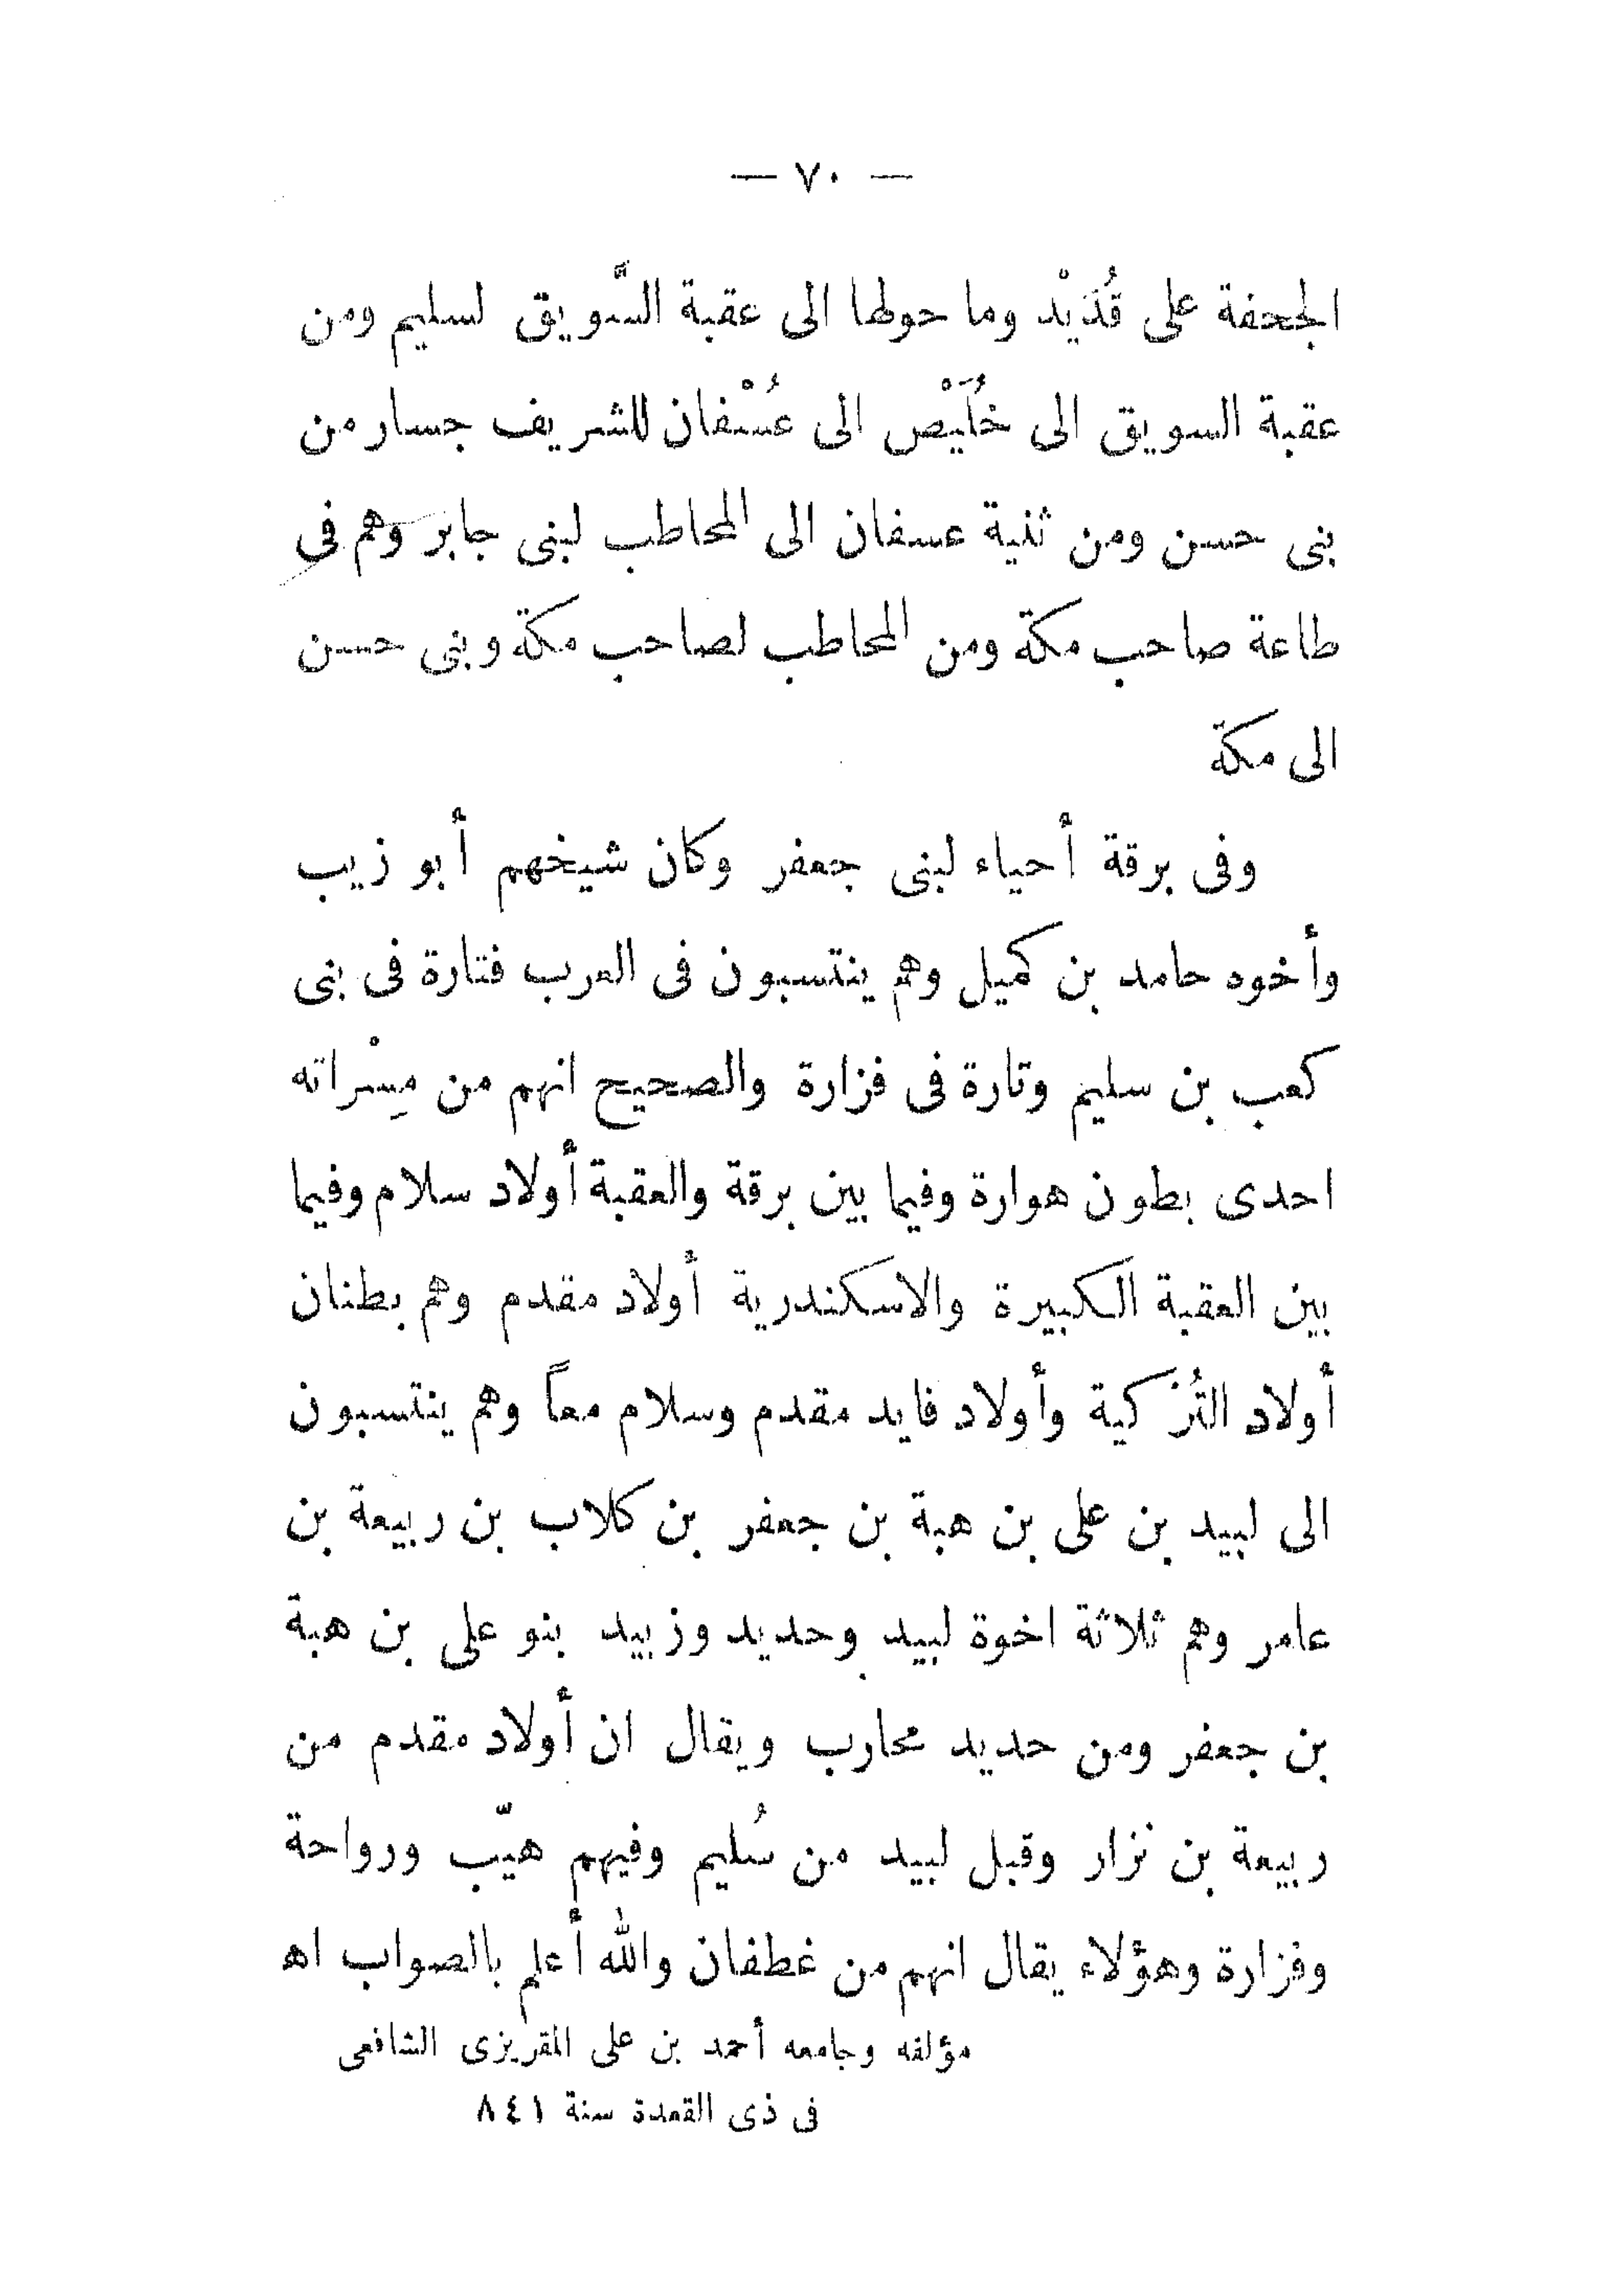 — ٧٠ —
الجحفة على قُدَيْد وما حولها الى عقبة السَّويق لسليم ومن
عقبة السويق الى خُلَيْص الى عُسْفان للشريف جسار من
بنى حسن ومن ثنية عسفان الى المحاطب لبنى جابر وهم فى
طاعة صاحب مكة ومن المحاطب لصاحب مكة وبنى حسن
الى مكة
وفى برقة أحياء لبنى جعفر وكان شيخهم أبو زيب
وأخوه حامد بن كميل وهم ينتسبون فى العرب فتارة فى بنى
كعب بن سليم وتارة فى فزارة والصحيح انهم من مِسْراته
احدى بطون هوارة وفيما بين برقة والعقبة أولاد سلام وفيما
بين العقبة الكبيرة والاسكندرية أولاد مقدم وهم بطنان
أولاد التُرْكية وأولاد فايد مقدم وسلام معاً وهم ينتسبون
الى لبيد بن على بن هبة بن جعفر بن كلاب بن ربيعة بن
عامر وهم ثلاثة اخوة لبيد وحديد وزبيد بنو على بن هبة
بن جعفر ومن حديد محارب ويقال ان أولاد مقدم من
ربيعة بن نزار وقبل لبيد من سُليم وفيهم هيّب ورواحة
وفزارة وهؤلاء يقال انهم من غطفان والله أعلم بالصواب اه
مؤلفه وجامعه أحمد بن على المقريزى الشافعى
فى ذى القعدة سنة ٨٤١